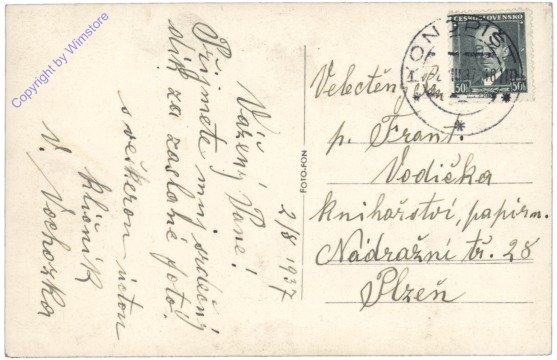 2/8 1937
Vážený Pane!
Přijmete muj srdečný
dík za zaslané foto!
s veškerou úctou
V. Vochozka
FOTO-FON
ČESKOSLOVENSKO
50h 50h
Velectěný
p. Frant.
Vodička
knihařství, papírn.
Nádražní tř. 28
Plzeň
Copyright by Wimstore